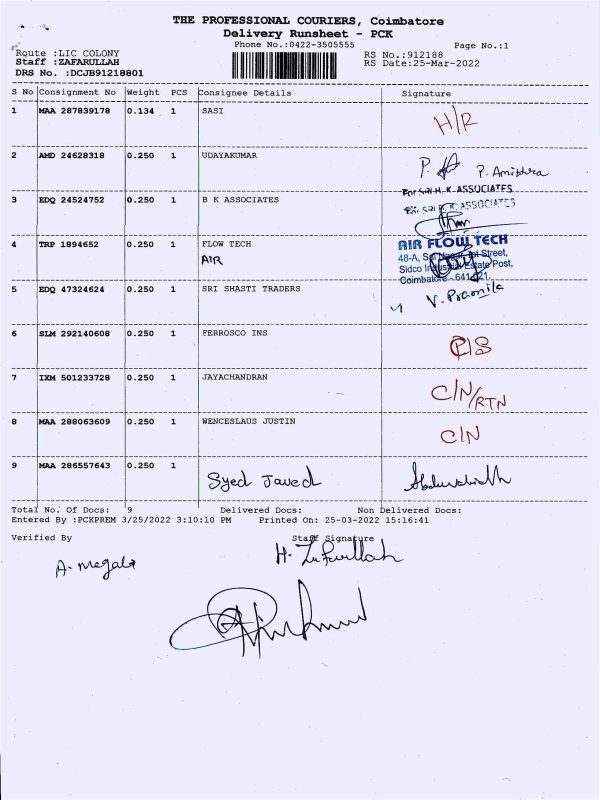 THE PROFESSIONAL COURIERS, Coimbatore
Delivery Runsheet - PCK
Phone No.:0422-3505555
Page No.:1
Route :LIC COLONY
RS No.:912188
Staff :ZAFARULLAH
RS Date:25-Mar-2022
DRS No. :DCJB91218801
S No Consignment No Weight PCS Consignee Details Signature
1 MAA 287839178 0.134 1 SASI H/R
2 AMD 24628318 0.250 1 UDAYAKUMAR
3 EDQ 24524752 0.250 1 B K ASSOCIATES
K. ASSOCIATES
4 TRP 1894652 0.250 1 FLOW TECH
AIR
AIR FLOW TECH
48-A, Street,
Sidco Industrial Estate Post,
Coimbatore - 641 021.
5 EDQ 47324624 0.250 1 SRI SHASTI TRADERS V. Pramila
6 SLM 292140608 0.250 1 FERROSCO INS
7 IXM 501233728 0.250 1 JAYACHANDRAN C/N/RTN
8 MAA 288063609 0.250 1 WENCESLAUS JUSTIN C/N
9 MAA 286557643 0.250 1 Syed Javed
Total No. Of Docs: 9 Delivered Docs: Non Delivered Docs:
Entered By :PCKPREM 3/25/2022 3:10:10 PM Printed On: 25-03-2022 15:16:41
Verified By Staff Signature
A. Megala